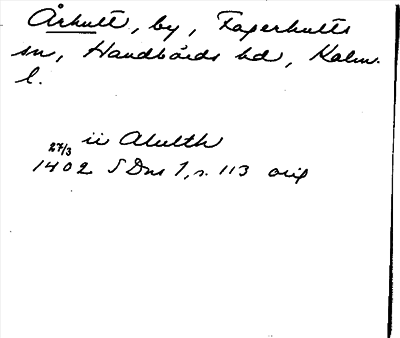 Århult, by, Fagerhults
sn, Handbörds hd, Kalm.
l.
27/3 ii Alulth
1402 SDns 1, s. 113 orig